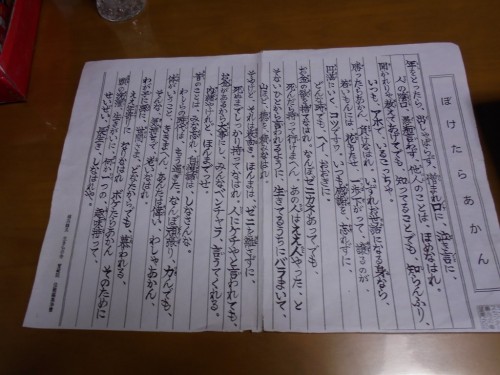 ぼけたらあかん
年をとったら、出しゃばらず、憎まれ口に、泣き言に、
人の蔭口、愚痴言わず、他人のことは、ほめなはれ、
聞かれりゃ教えてあげてでも、知ってることでも、知らんふり、
いつも、アホで、いるこっちゃ。
勝ったらあかん、負けなはれ、いづれお世話になる身なら、
若いもんには、花もたせ、一歩下がって、譲るのが、
円満にいく、コツですわ。いつも感謝を、忘れずに、
どんな時でも、へえ、おおきに。
お金の欲を捨てなはれ、なんぼゼニカネあってでも、
死んだら持って行けまへん、あの人はええ人やった、と
そないひとから言われるように、生きてるうちにバラまいて、
山ほど、徳を積みなはれ
そやけど、それは表向き、ほんまは、ゼニを離さずに、
死ぬまでしっかり持ってなはれ、人にケチやと言われても、
お金があるから大事にし、みんなベンチャラ、言うてくれる、
内緒やけれど、ほんまでっせ。
昔のことは、みな忘れ、自慢話は、しなさんな、
わしらの時代は、もう過ぎた、なんぼ頑張り、力んでも、
体がいうこと、ききまへん、あんたは偉い、わしゃあかん、
そんな、気持ちで、おりなはれ、
わが子に孫に、世間さま、どなたからでも、慕われる、
ええ年寄りに、なりなはれ、ボケたらあかん そのために
頭の洗濯、生きがいに、何か一つの、趣味持って、
せいぜい、長生き、しなはれや。